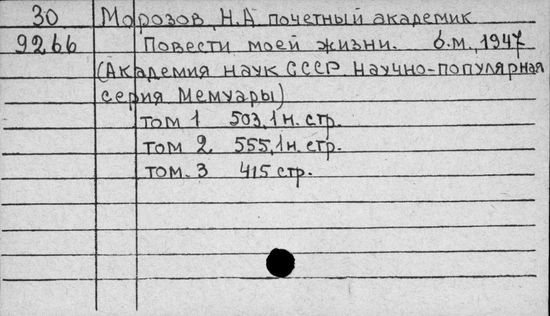 30 Морозов, Н.А почетный академик
9266 Повести моей жизни. б.м., 1947
(Академия наук СССР научно-популярная
серия Мемуары)
том 1 503, 1 н. стр.
том 2. 555, 1 н. стр.
том. 3 415 стр.